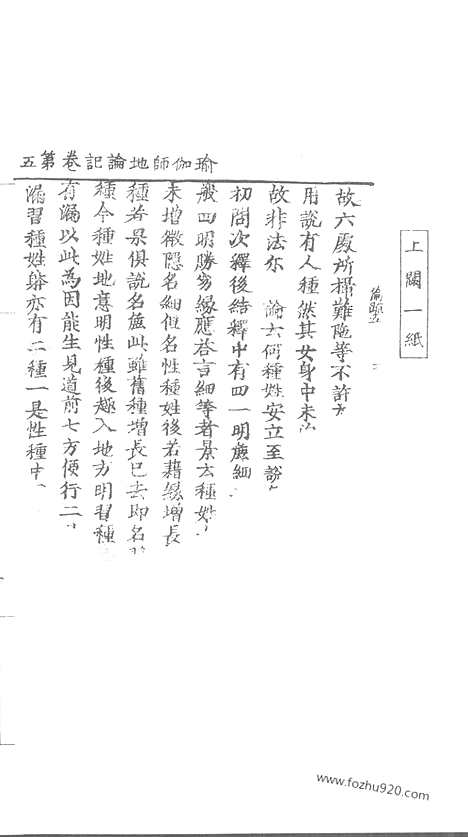 上闕一紙
故六處所攝難陁等不許
用說有人種然其女身中未
故非法尔 論云何種姓安立至說
初問次釋後結釋中有四一明麁細
般四明勝劣緣應答言細等者景云種姓
未增微隱名細但名性種姓後若藉緣增長
種若果俱說名麁此雖舊種增長已去即名習
種今種姓地意明性種後趣入地方明習種
有漏以此為因能生見道前七方便行二
漏習種姓亦有二種一是性種
瑜伽師地論記卷第五
www.fozhu920.com